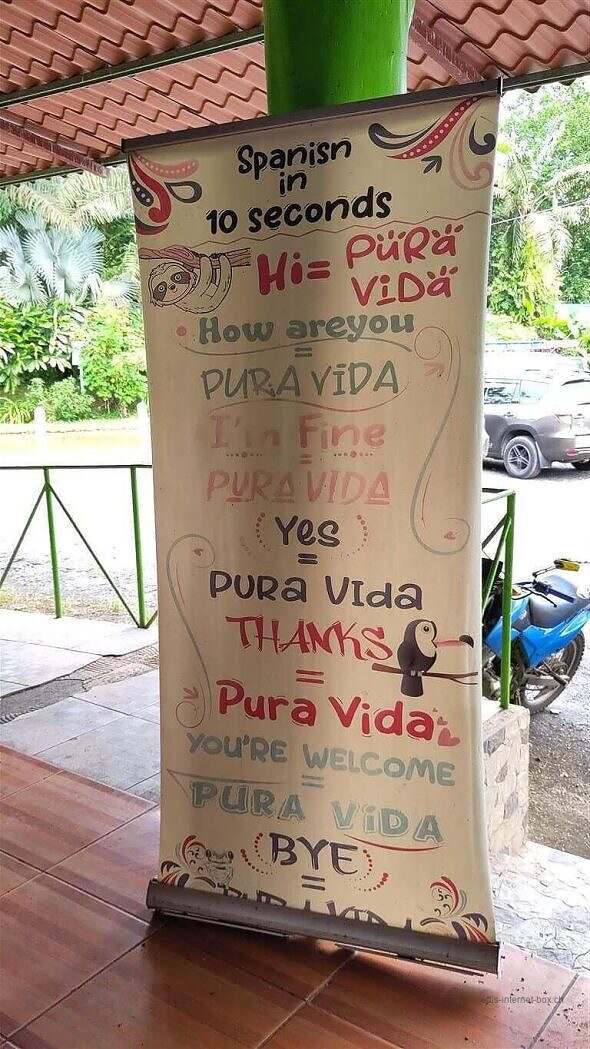 Spanisn
in
10 seconds
Hi= PURA
VIDA
How areyou
=
PURA VIDA
I'm Fine
=
PURA VIDA
Yes
=
PURA VIDA
THANKS
=
Pura Vida
YOU'RE WELCOME
=
PURA VIDA
BYE
=
PURA VIDA